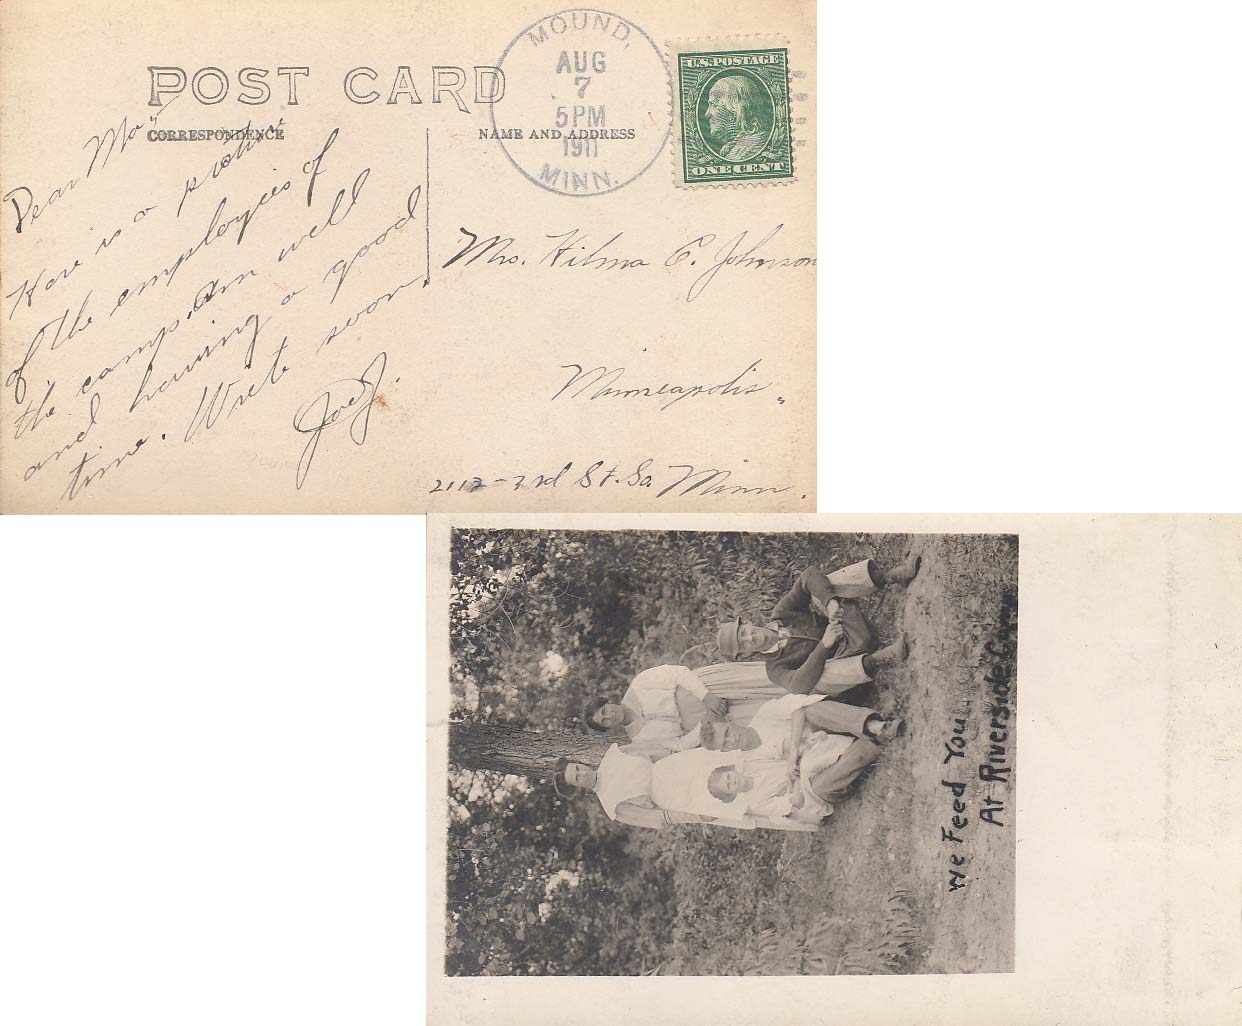 POST CARD
CORRESPONDENCE
NAME AND ADDRESS
MOUND,
AUG
7
5PM
1911
MINN.
U.S. POSTAGE
ONE CENT
Dear Ma"
Here is a picture
of the employees of
the camp. Am well
and having a good
time. Write soon.
Joe J.
Mrs. Hilma C. Johnson
Minneapolis
2112-3rd St. So. Minn.
We Feed You
At Riverside Cam